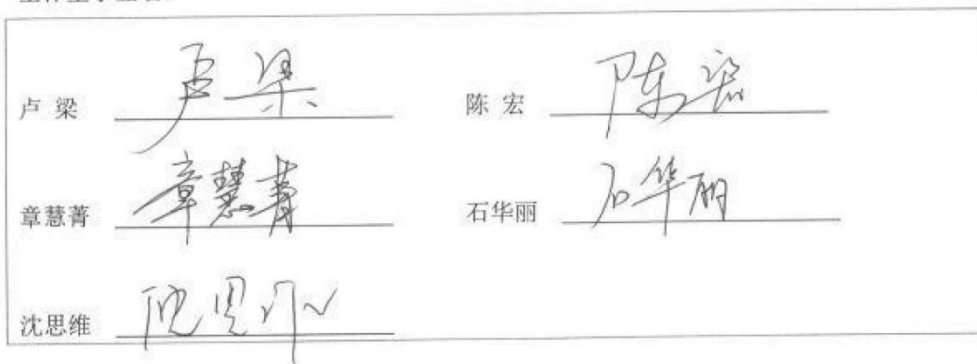 卢 梁 卢梁 陈 宏 陈宏
章慧菁 章慧菁 石华丽 石华丽
沈思维 沈思维